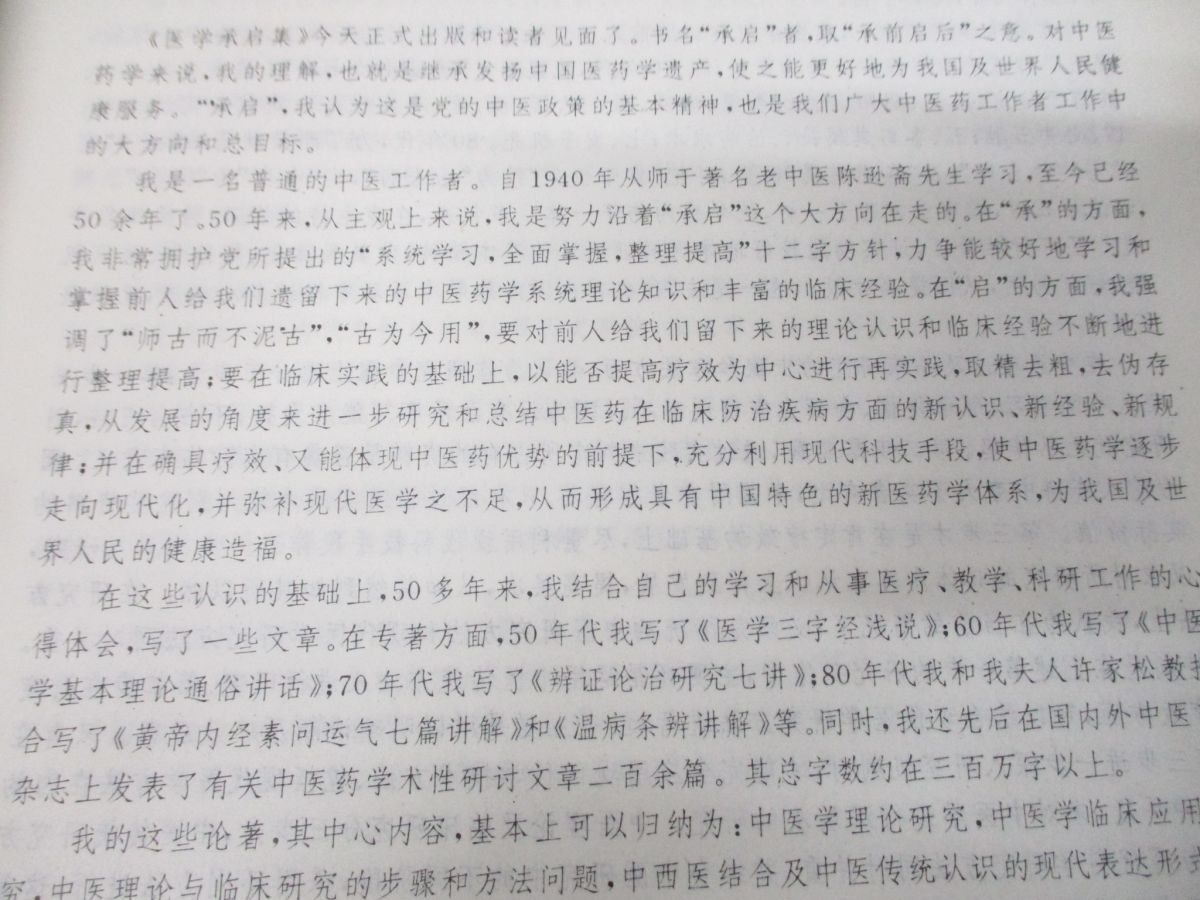 《医学承启集》今天正式出版和读者见面了。书名“承启”者，取“承前启后”之意。对中医
药学来说，我的理解，也就是继承发扬中国医药学遗产，使之能更好地为我国及世界人民健
康服务。“承启”，我认为这是党的中医政策的基本精神，也是我们广大中医药工作者工作中
的大方向和总目标。
我是一名普通的中医工作者。自1940年从师于著名老中医陈逊斋先生学习，至今已经
50余年了。50年来，从主观上来说，我是努力沿着“承启”这个大方向在走的。在“承”的方面，
我非常拥护党所提出的“系统学习，全面掌握，整理提高”十二字方针，力争能较好地学习和
掌握前人给我们遗留下来的中医药学系统理论知识和丰富的临床经验。在“启”的方面，我强
调了“师古而不泥古”，“古为今用”，要对前人给我们留下来的理论认识和临床经验不断地进
行整理提高；要在临床实践的基础上，以能否提高疗效为中心进行再实践，取精去粗，去伪存
真，从发展的角度来进一步研究和总结中医药在临床防治疾病方面的新认识、新经验、新规
律；并在确具疗效、又能体现中医药优势的前提下，充分利用现代科技手段，使中医药学逐步
走向现代化，并弥补现代医学之不足，从而形成具有中国特色的新医药学体系，为我国及世
界人民的健康造福。
在这些认识的基础上，50多年来，我结合自己的学习和从事医疗、教学、科研工作的心
得体会，写了一些文章。在专著方面，50年代我写了《医学三字经浅说》；60年代我写了《中医
学基本理论通俗讲话》；70年代我写了《辨证论治研究七讲》；80年代我和我夫人许家松教授
合写了《黄帝内经素问运气七篇讲解》和《温病条辨讲解》等。同时，我还先后在国内外中医
杂志上发表了有关中医药学术性研讨文章二百余篇。其总字数约在三百万字以上。
我的这些论著，其中心内容，基本上可以归纳为：中医学理论研究，中医学临床应用
究，中医理论与临床研究的步骤和方法问题，中西医结合及中医传统认识的现代表达形式